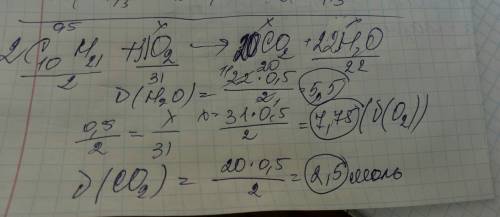 0,5 x x
2C10H21 + 31O2 → 20CO2 + 22H2O
2 31 20 22
ν(H2O) = 22·0,5 / 2 = 5,5
0,5/2 = x/31 x = 31·0,5 / 2 = 7,75 (ν(O2))
ν(CO2) = 20·0,5 / 2 = 2,5 моль